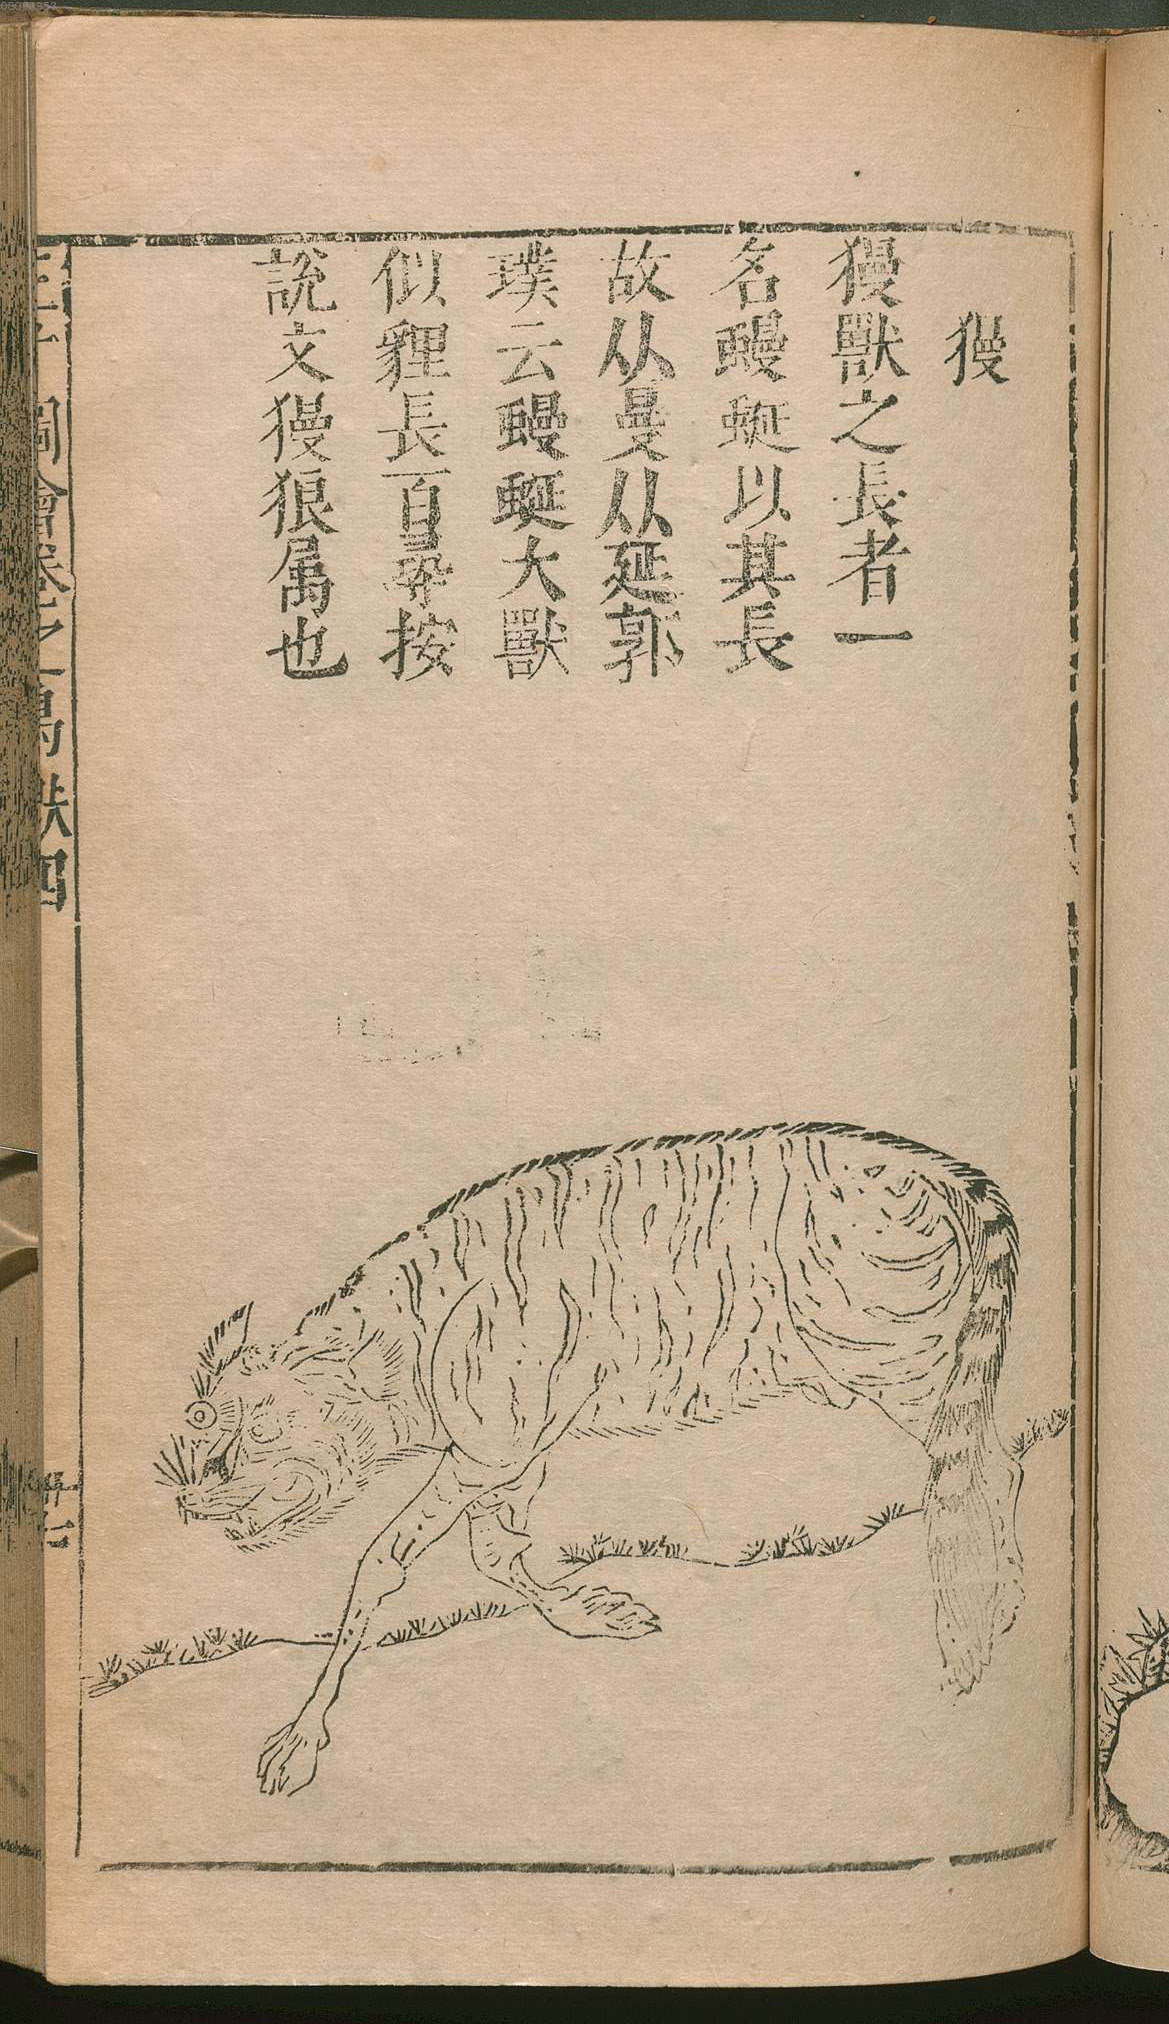 獌
獌獸之長者一
名蟃蜒以其長
故从曼从延郭
璞云蟃蜒大獸
似貍長百尋按
說文獌狼属也
三才圖會卷之 鳥獸四